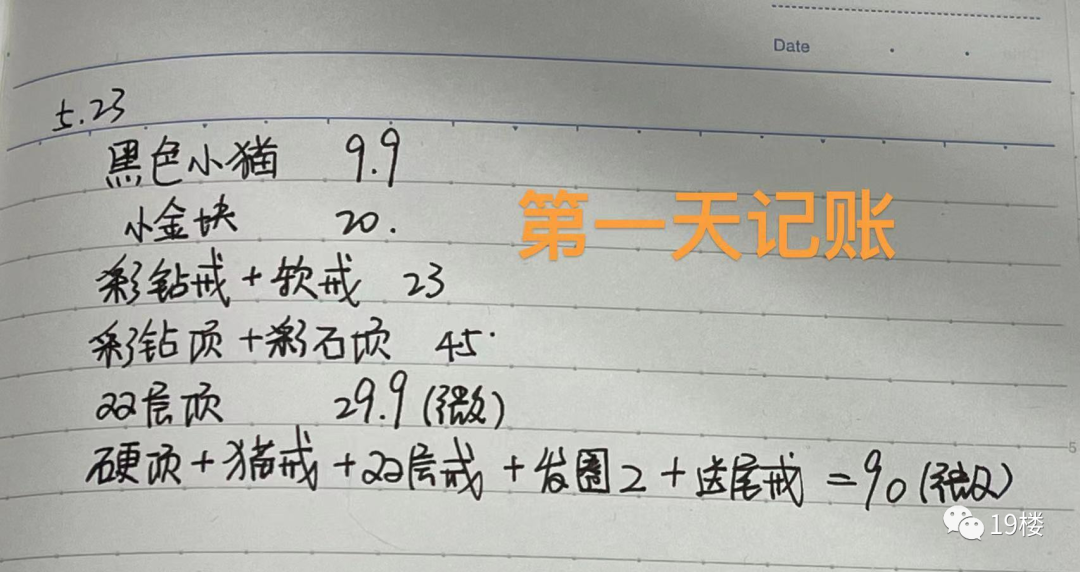 Date
5.23
黑色小猫 9.9
小金块 20.
彩钻戒+软戒 23
彩钻项+彩石项 45
双层项 29.9(微)
硬项+猫戒+双层戒+发圈2+送尾戒=90(微)
第一天记账
19楼